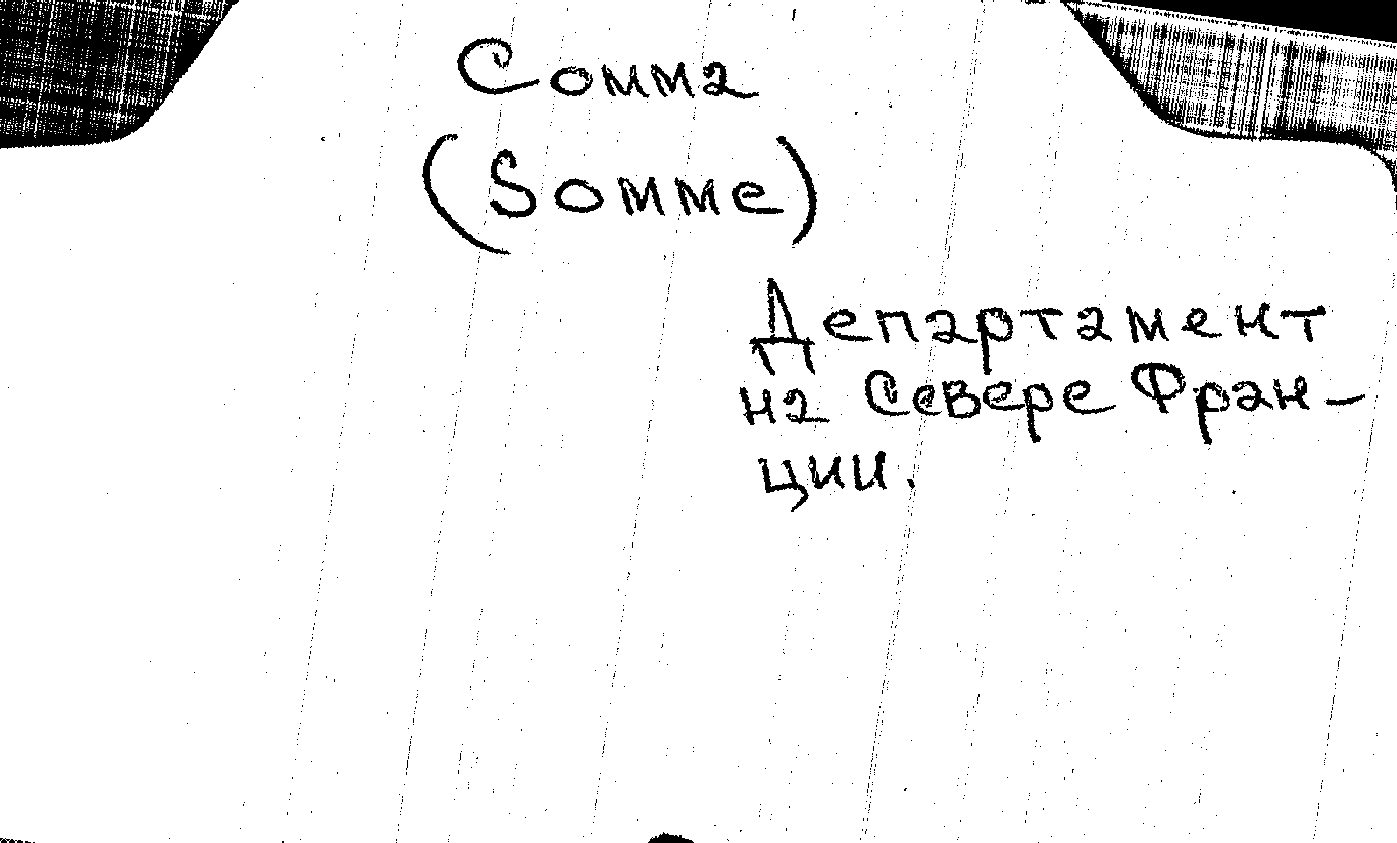 Сомма
(Somme)
Департамент
на Севере Фран-
ции.